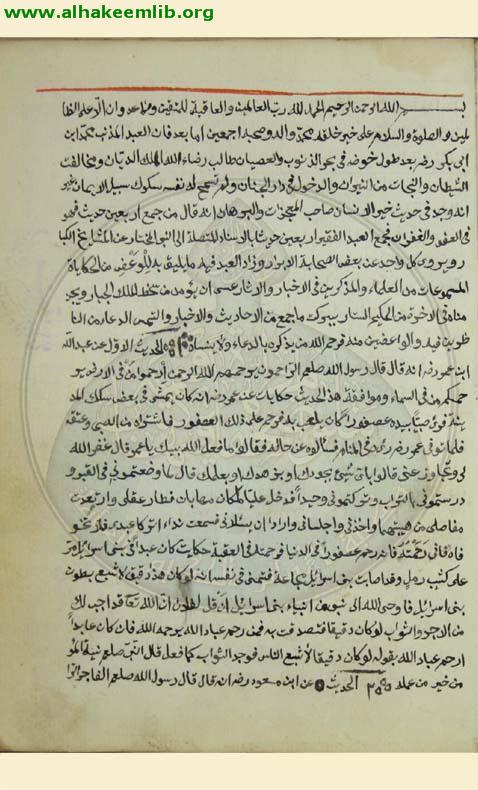 www.alhakeemlib.org
بسم الله الرحمن الرحيم الحمد لله رب العالمين والعاقبة للمتقين ولا عدوان الا على الظا
لمين والصلوة والسلام على خير خلقه محمد واله وصحبه اجمعين اما بعد فان العبد المذنب محمد ابن
ابى بكر رضه بعد طول خوضه فى بحر الذنوب والعصيان طالب رضاء الله الملك الديان ومخالفت
الشيطان والنجات من النيران والدخول فى دار الجنان ولم تسمح له نفسه سلوك سبيل الايمان بخبر
انه وجد فى حديث خير الانسان صاحب المعجزات والبرهان انه قال من جمع اربعين حديث فهو
فى العفو والغفران فجمع العبد الفقير اربعين حديثا بالاسناد المتصلة الى النبى المختار عن المشايخ الكبا
ر ويروى كل واحد عن بعض الصحابة الابرار وزاد العبد فيه ما يليق به للوعظ من الحكاياة
المسموعات من العلماء والمذكرين فى الاخبار والاثار عسى ان يؤمن من سخط الملك الجبار ويجد
مناه فى الاخرة من الحكيم الستار ببركت ما جمع من الاحاديث والاخبار والتمس الدعاء من النا
ظرين فيه والواعضين منه فرحم الله من يذكره بالدعاء ولا ينساه الحديث الاول عن عبد الله
ابن عمر رضه انه قال قال رسول الله صلعم الراحمون يرحمهم الله الرحمن ارحموا من فى الارض ير
حمكم من فى السماء وموافقة هذ الحديث حكايات عن عمر رضه انه كان يمشى فى بعض سكك المد
ينة فرئ صبيا بيده عصفورا كان يلعب به فرحم على ذلك العصفور فاشتراه من الصبى وعتقه
فلما توفى عمر رضه رئ فى المنام فسالوه عن حاله فقالوا ما فعل الله بيك يا عمر قال غفر الله
لى وتجاوز عنى قالوا باى شئ بجودك او بزهدك او بعلمك قال لما وضعتمونى فى القبر و
درستمونى بالتراب وتركتمونى وحيدا فدخل على ملكان مهابان فطار عقلى وارتعدت
مفاصلى من هيبتهما واخذنى واجلسانى وارادا ان يسئلانى فسمعت نداء اتركا عبدى
فاه فانى رحمته فانه رحم عصفورا فى الدنيا فرحمته فى العقبة حكايت كان عبدا فى بنى اسرائيل
على كثب رمل وقد اصابت بنى اسرائيل مجاعة فتمنى فى نفسه انه لو كان هذ دقيق لاشبع بطون
بنى اسرائيل فاوحى الله الى نبى من انبياء بنى اسرائيل ان قل لفلان ان الله تعا قد اوجب لك
من الاجر والثواب لو كان دقيقا فتصدقت به فمن رحم عباد الله يرحمه الله فان كان عابدا
ارحم عباد الله بقوله لو كان دقيقا لاشبع الناس فوجد الثواب كما فعل قال النبى صلعم نية المؤ
من خير من عمله الحديث عن ابن مسعود رضه انه قال قال رسول الله صلعم الفاجر